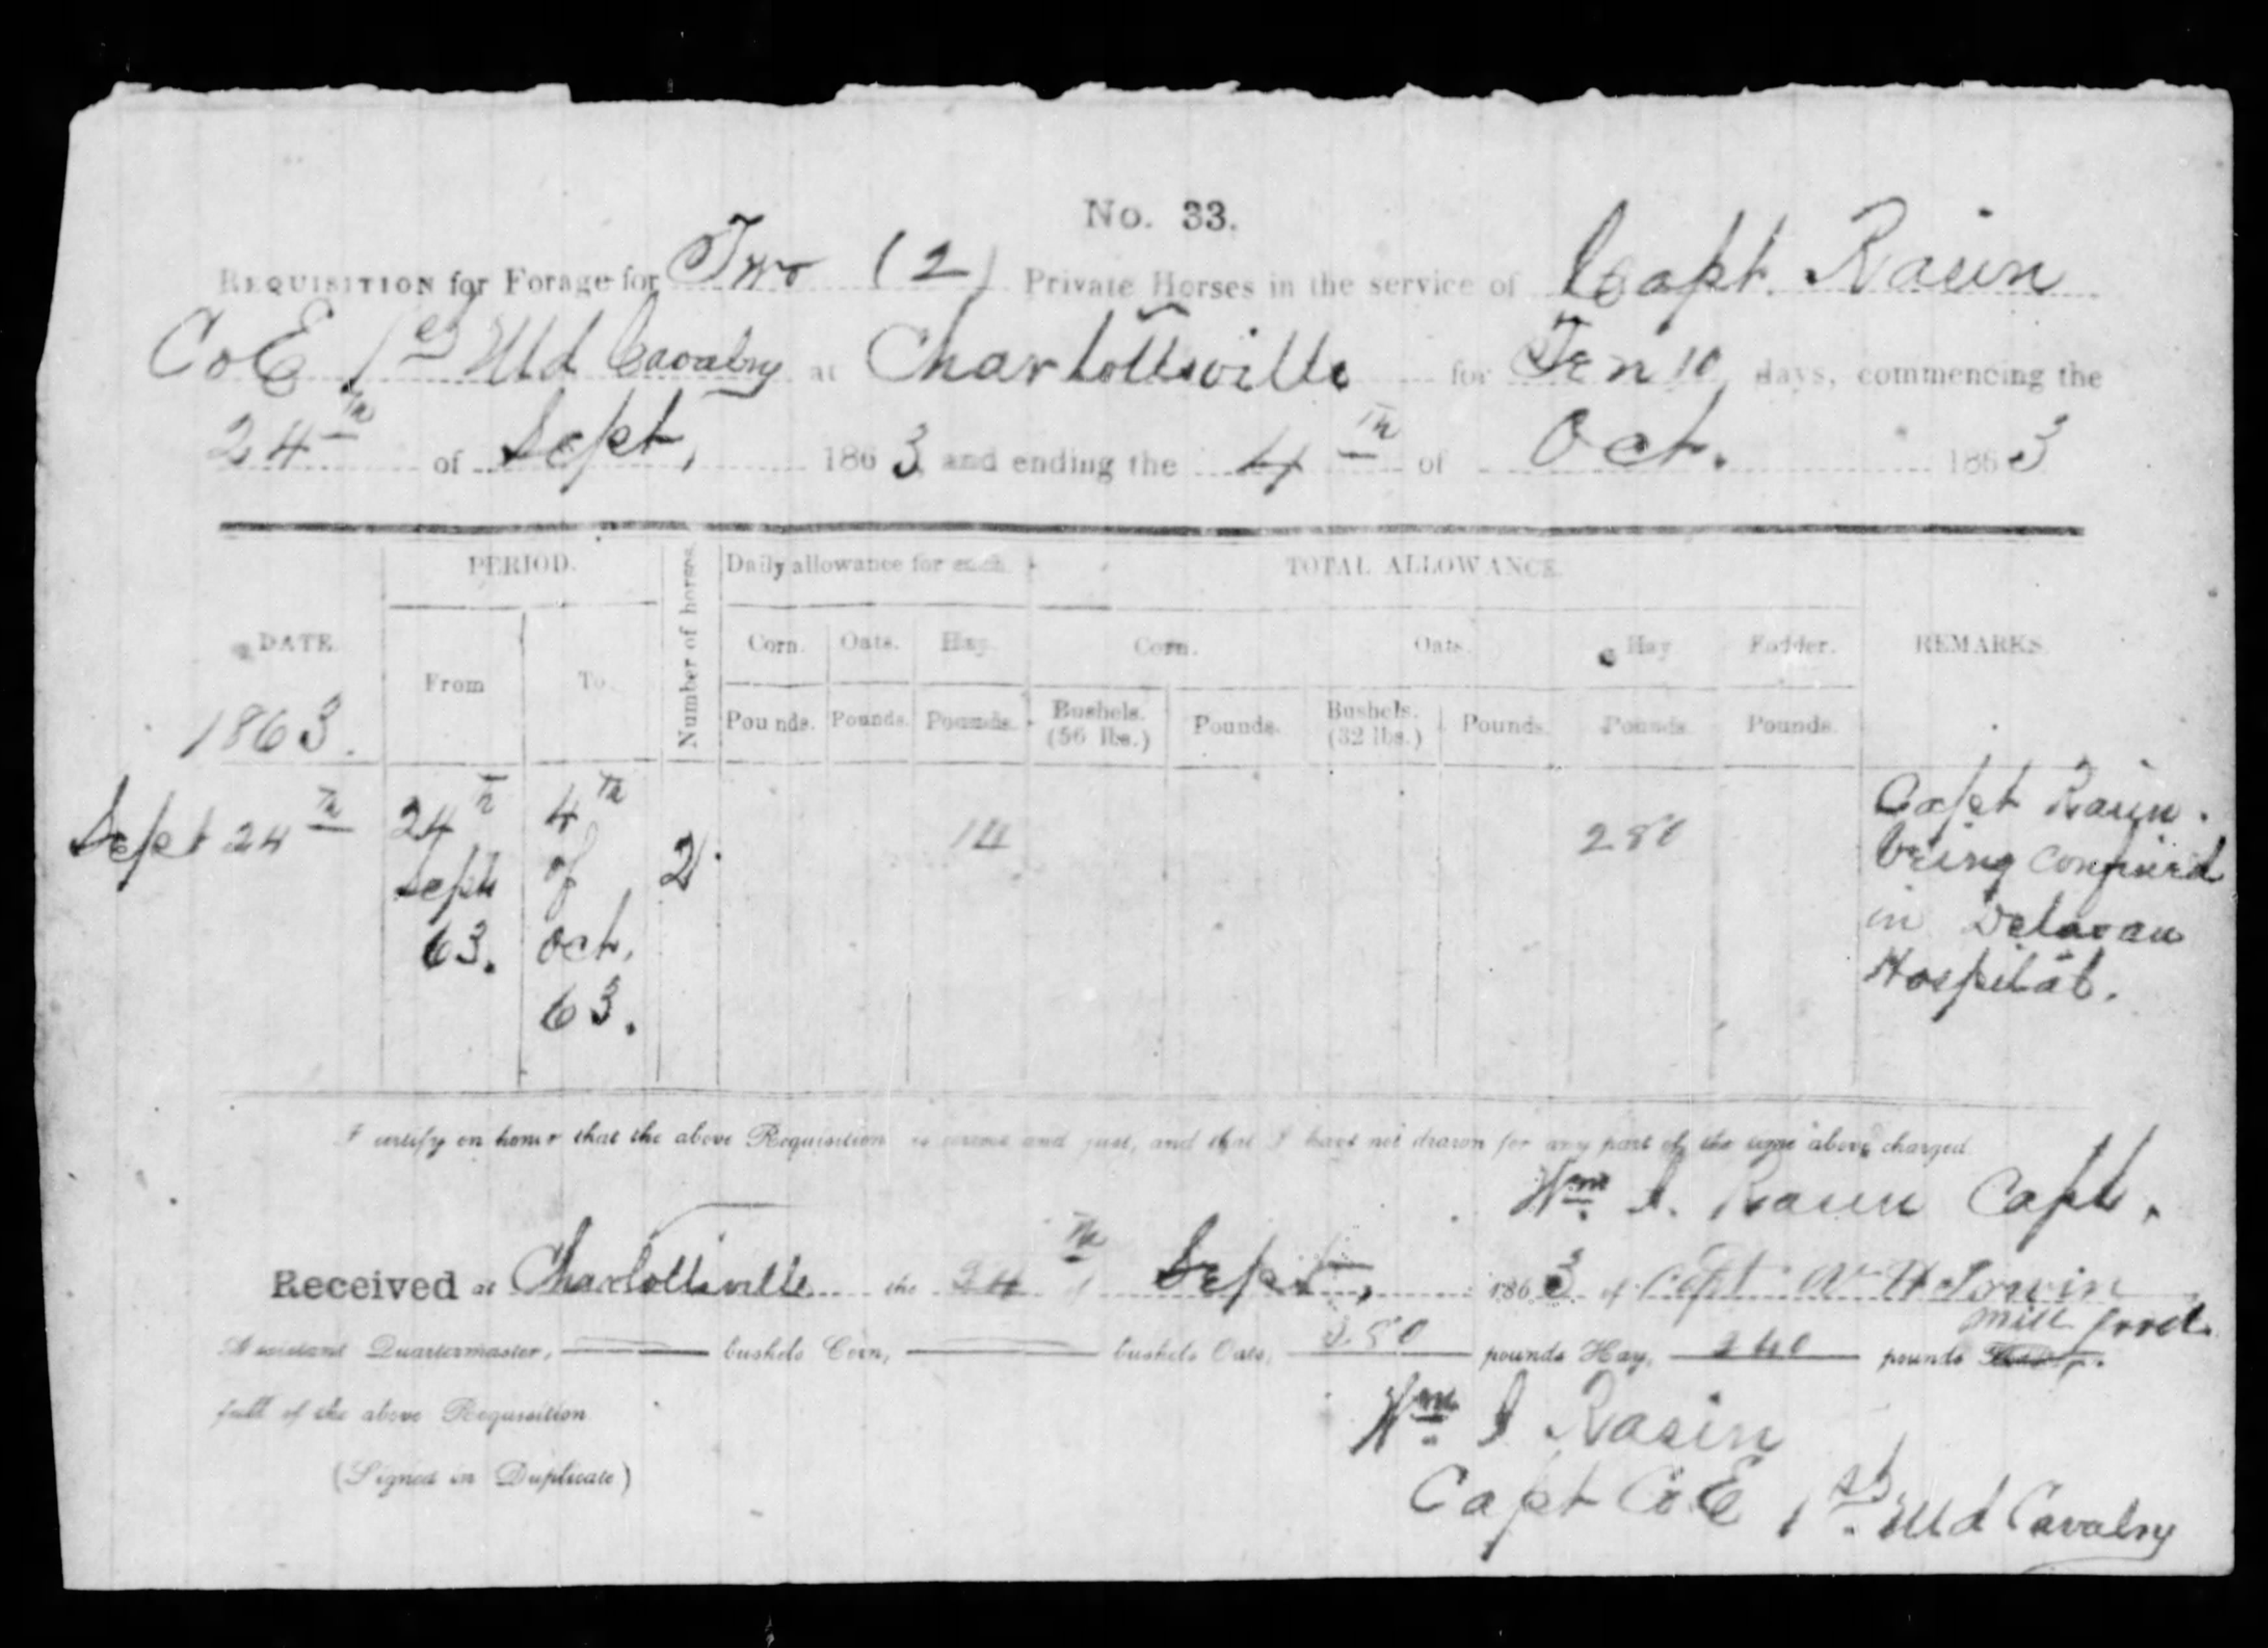 No. 33.
REQUISITION for Forage for Two (2) Private Horses in the service of Capt. Rasin
Co E 1st Md Cavalry at Charlottsville for Ten 10 days, commencing the
24th of Sept, 1863 and ending the 4th of Oct. 1863
DATE. PERIOD. Number of horses. Daily allowance for each. TOTAL ALLOWANCE. REMARKS.
From To Corn. Oats. Hay. Corn. Oats. Hay Fodder.
1863. Pounds. Pounds. Pounds. Bushels. (56 lbs.) Pounds. Bushels. (32 lbs.) Pounds. Pounds. Pounds.
Sept 24th 24th 4th 2 14 280 Capt Rasin.
Sept of being confined
63. Oct. in Delavan
63. Hospital.
I certify on honor that the above Requisition is correct and just, and that I have not drawn for any part of the time above charged.
Wm. I. Rasin Capt.
Received at Charlottsville the 24th of Sept, 1863 of Capt W H Irwin
mill feed
Assistant Quartermaster, bushels Corn, bushels Oats, 280 pounds Hay, 240 pounds
full of the above Requisition
(Signed in Duplicate)
Wm. I Rasin
Capt Co. E 1st. Md Cavalry